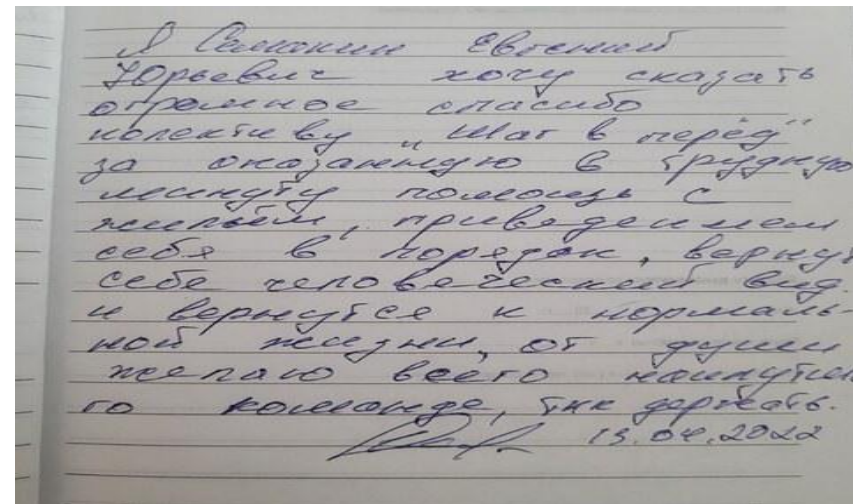 Я Самонин Евгений
Юрьевич хочу сказать
огромное спасибо
колективу "Шаг в перёд"
за оказанную в трудную
минуту помощь с
жильём, приведением
себя в порядок, вернут
себе человеческий вид.
и вернутся к нормаль-
ной жизни, от души
желаю всего наилутше
го команде, так держать.
13.04.2022